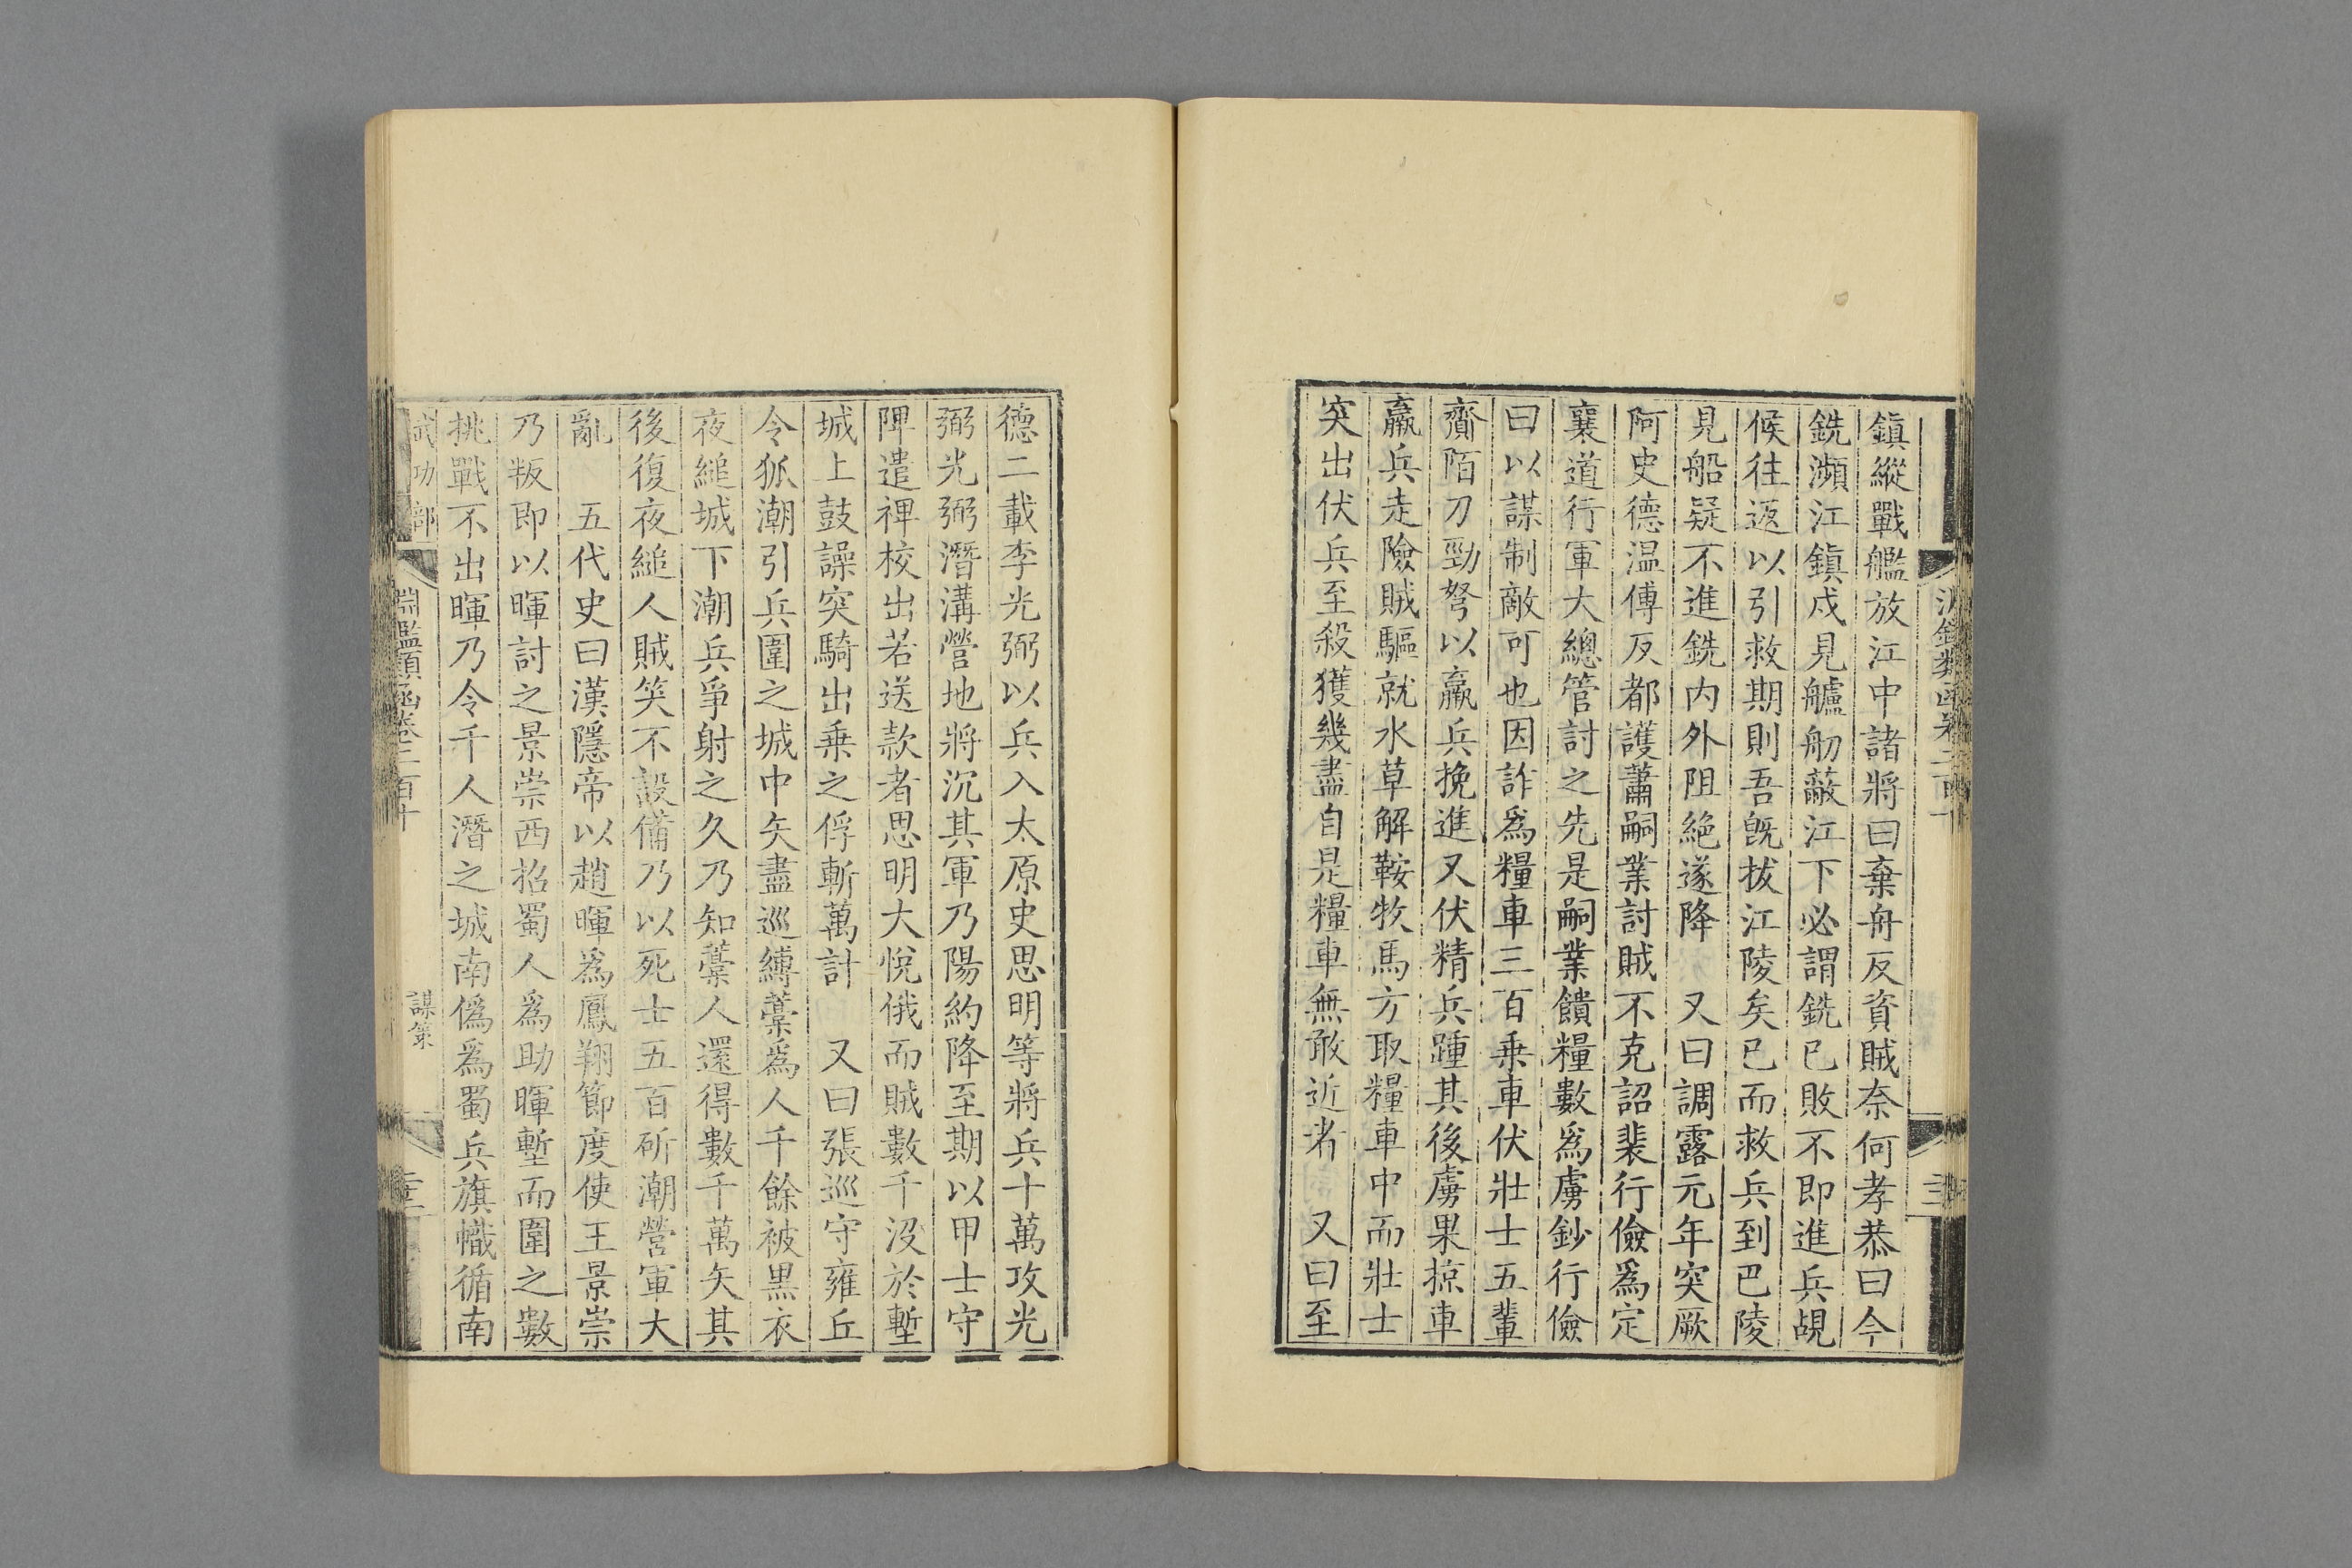 鎮縱戰艦放江中諸將曰棄舟反資賊奈何孝恭曰今
銑瀕江鎮戍見艫舠蔽江下必謂銑已敗不即進兵覘
候往返以引救期則吾旣拔江陵矣已而救兵到巴陵
見船疑不進銑内外阻絕遂降　又曰調露元年突厥
阿史德温傅反都護蕭嗣業討賊不克詔裴行儉爲定
襄道行軍大總管討之先是嗣業饋糧數爲虜鈔行儉
曰以謀制敵可也因詐爲糧車三百乗車伏壯士五輩
齎陌刀勁弩以羸兵挽進又伏精兵踵其後虜果掠車
羸兵走險賊驅就水草解鞍牧馬方取糧車中而壯士
突出伏兵至殺獲幾盡自是糧車無敢近者　又曰至
德二載李光弼以兵入太原史思明等將兵十萬攻光
弼光弼潛溝營地將沉其軍乃陽約降至期以甲士守
陴遣禆校出若送款者思明大悅俄而賊數千没於塹
城上鼓譟突騎出乗之俘斬萬計　又曰張巡守雍丘
令狐潮引兵圍之城中矢盡巡縛藁爲人千餘被黑衣
夜縋城下潮兵爭射之久乃知藁人還得數千萬矢其
後復夜縋人賊笑不設備乃以死士五百斫潮營軍大
亂　五代史曰漢隱帝以趙暉爲鳳翔節度使王景崇
乃叛即以暉討之景崇西招蜀人爲助暉塹而圍之數
挑戰不出暉乃令千人潛之城南僞爲蜀兵旗幟循南
武功部　淵鑑類函卷二百十　謀策